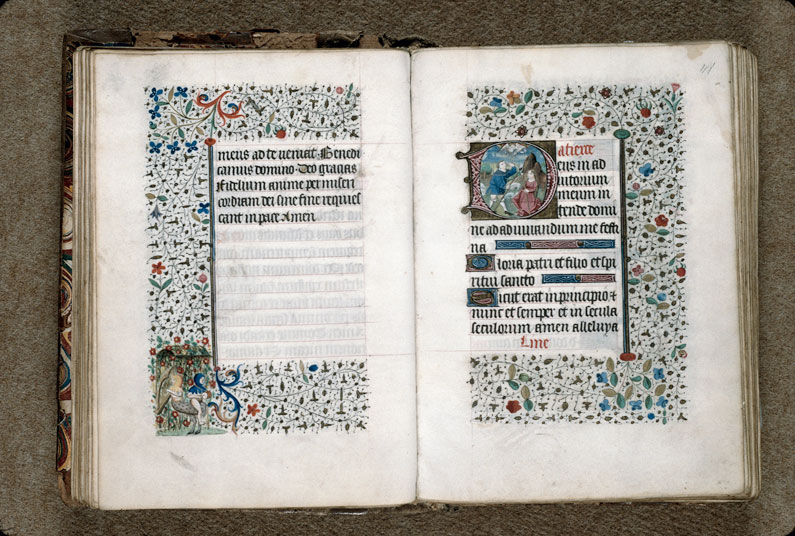 meus ad te veniat. Benedi
camus domino. Deo gratias
Fidelium anime per miseri
cordiam dei sine fine requies
cant in pace Amen.
a tierce
Deus in ad
iutorium
meum in
tende domi
ne ad adiuvandum me festi
na
Gloria patri et filio et spi
ritui sancto
Sicut erat in principio et
nunc et semper et in secula
seculorum amen alleluya